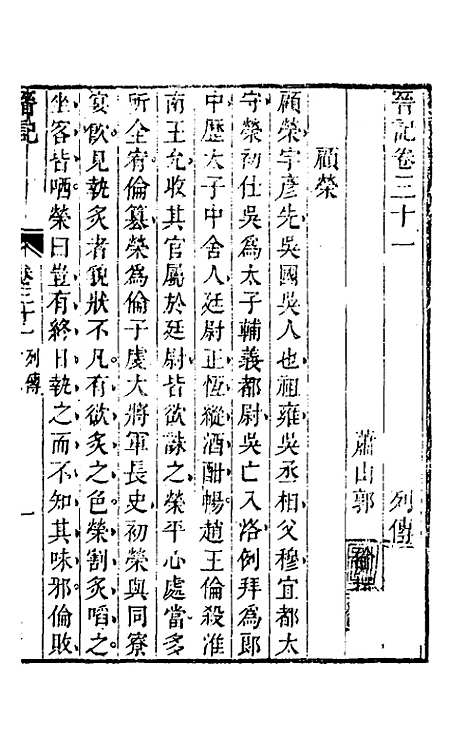 晉記卷三十一　　列傳
蕭山郭
顧榮
顧榮字彥先吳國吳人也祖雍吳丞相父穆宜都太
守榮初仕吳爲太子輔義都尉吳亡入洛例拜爲郎
中歷太子中舍人廷尉正恆縱酒酣暢趙王倫殺淮
南王允收其官屬於廷尉皆欲誅之榮平心處當多
所全宥倫篡榮爲倫子虔大將軍長史初榮與同寮
宴飲見執炙者貌狀不凡有欲炙之色榮割炙啗之
坐客皆哂榮曰豈有終日執之而不知其味邪倫敗
晉記
卷三十一 列傳
一